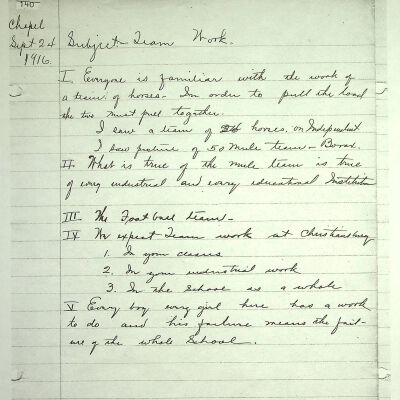 140
Chapel
Sept 24
1916.
Subject - Team Work.
I. Everyone is familiar with the work of
a team of horses - In order to pull the load
the two must pull together.
I saw a team of horses. on Independent
I saw picture of 50 Mule team - Borax.
II. What is true of the mule team is true
of every industrial and every educational Institution
III. The Foot ball team -
IV We expect Team work at Christiansburg
1. In your classes
2. In your industrial work
3. In the School as a whole
V Every boy every girl here has a work
to do and his failure means the fail-
ure of the whole School.